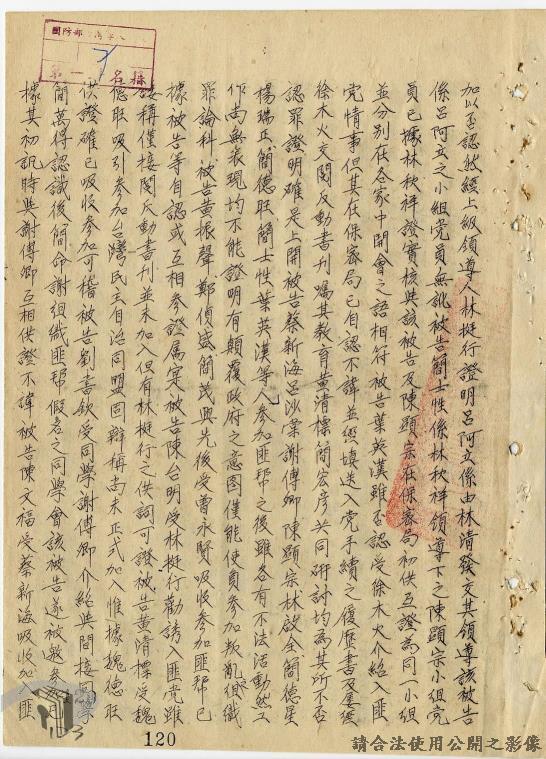 加以否認然經上級領導人林挺行證明呂阿立係由林清發交其領導該被告
係呂阿立之小組党員無訛被告簡士性係林秋祥領導下之陳顯宗小組党
員已據林秋祥證實核與該被告及陳顯宗在保密局初供互證為同一小組
並分別在念家中開會之語相符被告葉英漢雖否認受徐木火介紹入匪
党情事但其在保密局已自認不諱並經填送入党手續之履歷書及屢經
徐木火交閱反動書刊囑其教育黃清標簡宏彥共同研討均為其所不否
認罪證明確是上開被告蔡新海呂沙棠謝傳卿陳顯宗林啟全簡德星
楊瑞正簡德旺簡士性葉英漢等人參加匪帮之後雖各有不法活動然工
作尚無表現均不能證明有顛覆政府之意图僅能使負參加叛亂組織
罪論科 被告黃振聲鄭侦盛簡茂興先後受曹永賢吸收參加匪帮已
據被告等自認或互相參證属寔被告陳台明受林挺行勸誘入匪党雖
據稱僅接閱反動書刊並未加入但有林挺行之供詞可證被告黃清標受魏
德旺吸引參加台灣民主自治同盟固辯稱尚未正式加入惟據魏德旺
供證確已吸收參加可稽被告劉書欽受同學謝傳卿介紹與間接同學
簡萬得認識後簡命謝組織匪帮假名之同學會該被告遂被邀參加
據其初訊時與謝傳卿互相供證不諱被告陳文福受蔡新海吸收加入匪
國防部
第一 名
120
請合法使用公開之影像